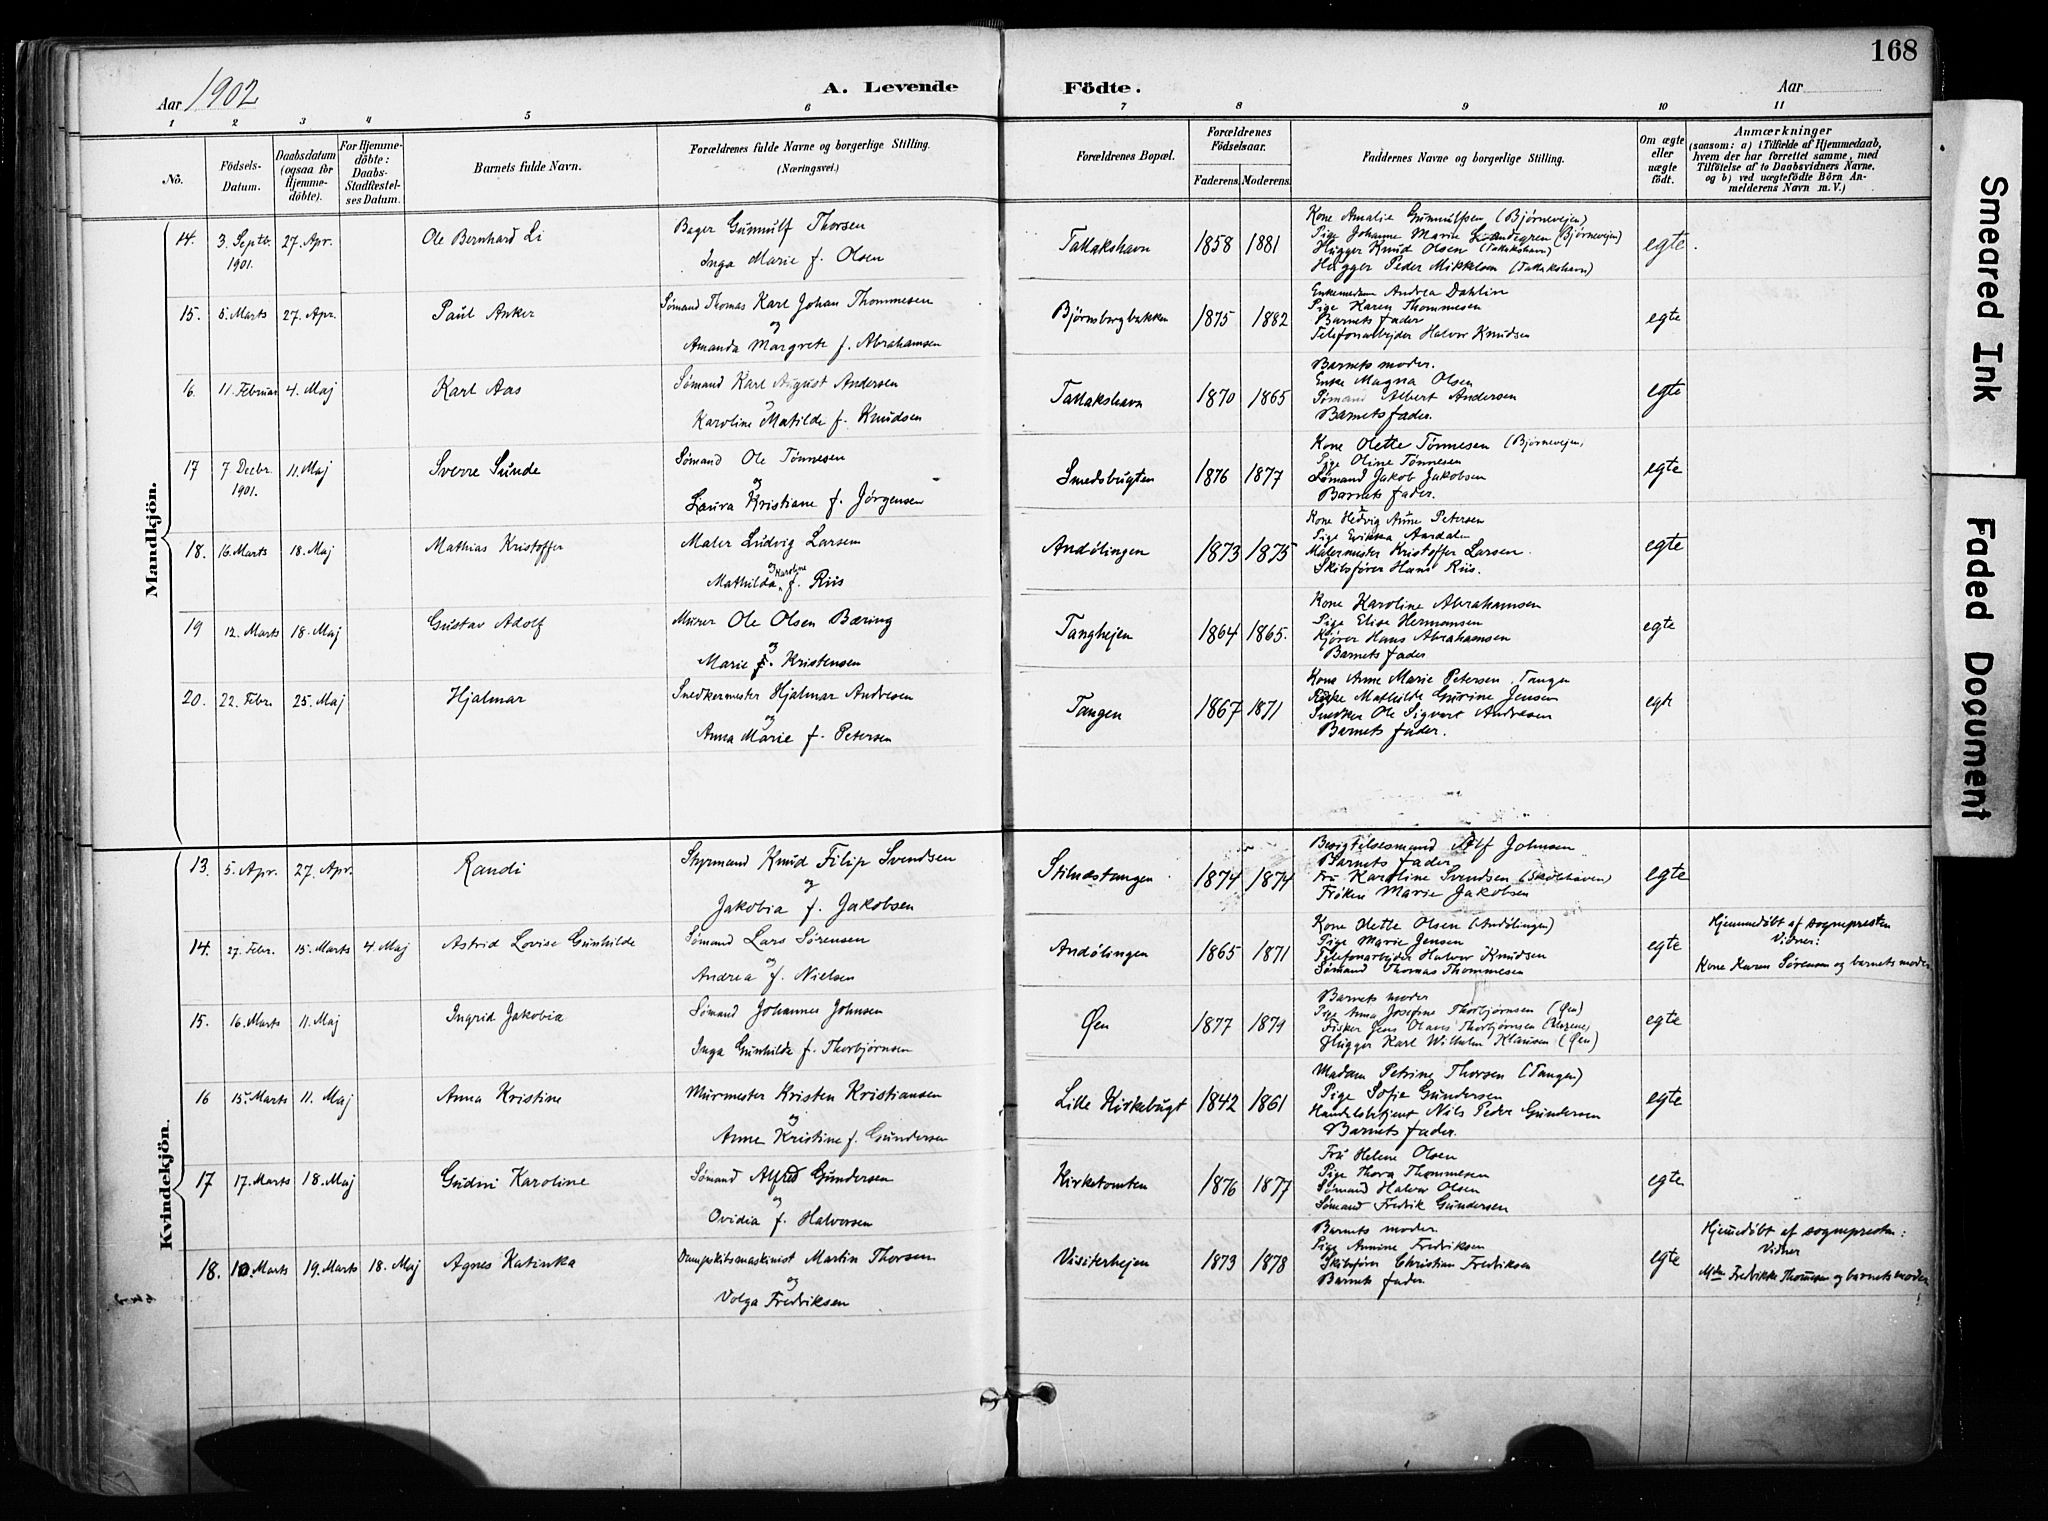 168
Aar 1902
A. Levende
Födte.
Aar
1 2 3 4 5 6 7 8 9 10 11
No.
Födsels-Datum.
Daabsdatum (ogsaa for Hjemmedöbte).
For Hjemmedöbte: Daabs-Stadfestelses Datum.
Barnets fulde Navn.
Forældrenes fulde Navne og borgerlige Stilling.
(Næringsvei.)
Forældrenes Bopæl.
Forældrenes Födselsaar.
Faderens. Moderens.
Faddernes Navne og borgerlige Stilling.
Om ægte eller uægte födt.
Anmærkninger
(saasom: a) i Tilfælde af Hjemmedaab, hvem der har forrettet samme, med Tilföielse af to Daabsvidners Navne. og b) ved uægtefödte Börn Anmelderens Navn m. V.)
Mandkjön.
14. 3. Septb. 1901. 27. Apr. Ole Bernhard Li
Bager Gunnulf Thorsen
Inga Marie f. Olsen
Tallakshavn 1858 1881
Kone Amalie Gunnulfsen (Bjørnevejen)
Pige Johanne Marie Lundegren (Bjørnevejen)
Hugger Knud Olsen (Tallakshavn)
Hugger Peder Mikkelsen (Tallakshavn)
egte.
15. 5. Marts 27. Apr. Paul Anker
Sømand Thomas Karl Johan Thommesen
og
Amanda Margrete f. Abrahamsen
Bjørnsbergbakken 1875 1882
Enkemadam Andrea Dahlin
Pige Karen Thommesen
Barnets fader
Telefonarbejder Halvor Knudsen
egte
16. 11. Februar 4. Maj Karl Aas
Sømand Karl August Andersen
og
Karoline Matilde f. Knudsen
Tallakshavn 1870 1865
Barnets moder.
Enke Magna Olsen
Sømand Albert Andersen
Barnets fader.
egte
17 7 Decbr. 1901. 11. Maj Sverre Sunde
Sømand Ole Tønnesen
og
Laura Kristiane f. Jørgensen
Smedsbugten 1876 1877
Kone Olette Tønnesen (Bjørnevejen)
Pige Oline Tønnesen
Sømand Jakob Jakobsen
Barnets fader.
egte
18. 16. Marts 18. Maj Mathias Kristoffer
Maler Ludvig Larsen
og Karoline
Mathilda f. Riis
Andølingen 1873 1875
Kone Hedvig Anne Petersen
Pige Erikka Aardalen
Malermester Kristoffer Larsen.
Skibsfører Hans Riis.
egte
19 12. Marts 18. Maj Gustav Adolf
Murer Ole Olsen Bæring
og
Marie f. Kristensen
Tanghejen 1864 1865.
Kone Karoline Abrahamsen
Pige Elise Hermansen
Kjører Hans Abrahamsen
Barnets fader
egte
20. 22. Febr. 25. Maj Hjalmar
Snedkermester Hjalmar Andresen
og
Anna Marie f. Petersen
Tangen 1867 1871
Kone Anne Marie Petersen, Tangen
Mathilde Gurine Jensen
Snedker Ole Sigvart Andresen
Barnets fader.
egte
Kvindekjön.
13. 5. Apr. 27. Apr. Randi
Styrmand Knud Filip Svendsen
og
Jakobia f. Jakobsen
Stilnæstangen 1874 1874
Besigtelsesmand Alf Johnsen
Barnets fader
Fru Karoline Svendsen
Frøken Marie Jakobsen
egte
14. 27. Febr. 15. Marts 4. Maj Astrid Lovise Gunhilde
Sømand Lars Sørensen
og
Andrea f. Nielsen
Andølingen 1865 1871
Kone Olette Olsen (Andølingen)
Pige Marie Jensen
Telefonarbejder Halvor Knudsen
Sømand Thomas Thommesen
egte
Hjemmedøbt af sognepresten
Vidner:
Kone Karen Sørensen og barnets moder
15. 16. Marts 11. Maj Ingrid Jakobia
Sømand Johannes Johnsen
Inga Gunhilde f. Thorbjørnsen
Øen 1877 1879
Barnets moder
Pige Anna Josefine Thorbjørnsen (Øen)
Fisker Jens Olaves Thorbjørnsen
Hugger Karl Wilhelm Klausen (Øen)
egte
16 15. Marts 11. Maj Anna Kristine
Murmester Kristen Kristiansen
og
Anne Kristine f. Gundersen
Lille Kirkebugt 1842 1861
Madam Petrine Thorsen (Tangen)
Pige Sofie Gundersen
Handelsbetjent Nils Peder Gundersen
Barnets fader.
egte
17 17. Marts 18. Maj Gudni Karoline
Sømand Alfred Gundersen
og
Ovidia f. Halvorsen
Kirketomten 1876 1877
Fru Helene Olsen
Pige Thora Thommesen
Sømand Halvor Olsen
Sømand Fredrik Gundersen
egte
18. 10. Marts 19. Marts 18. Maj Agnes Katinka
Dampskibsmaskinist Martin Thorsen
og
Volga Fredriksen
Visiterhejen 1873 1878
Barnets moder.
Pige Annine Fredriksen
Skibsfører Christian Fredriksen
Barnets fader
egte
Hjemmedøbt af sognepresten:
Vidner
Mdm Fredrikke Thomesen og barnets moder
Smeared Ink
Faded Document